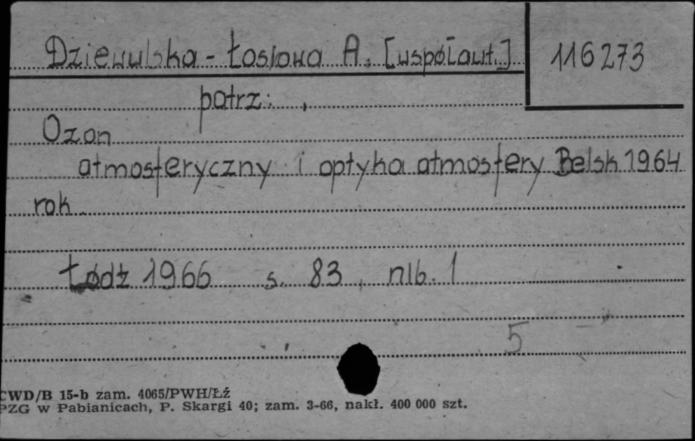 Dziewulska-Łosiowa A. [współaut.] 116273
patrz:
Ozon
atmosferyczny i optyka atmosfery Belsk 1964
rok
Łódź 1966 s. 83, nlb. 1
5
CWD/B 15-b zam. 4065/PWH/Łź
PZG w Pabianicach, P. Skargi 40; zam. 3-66, nakł. 400 000 szt.